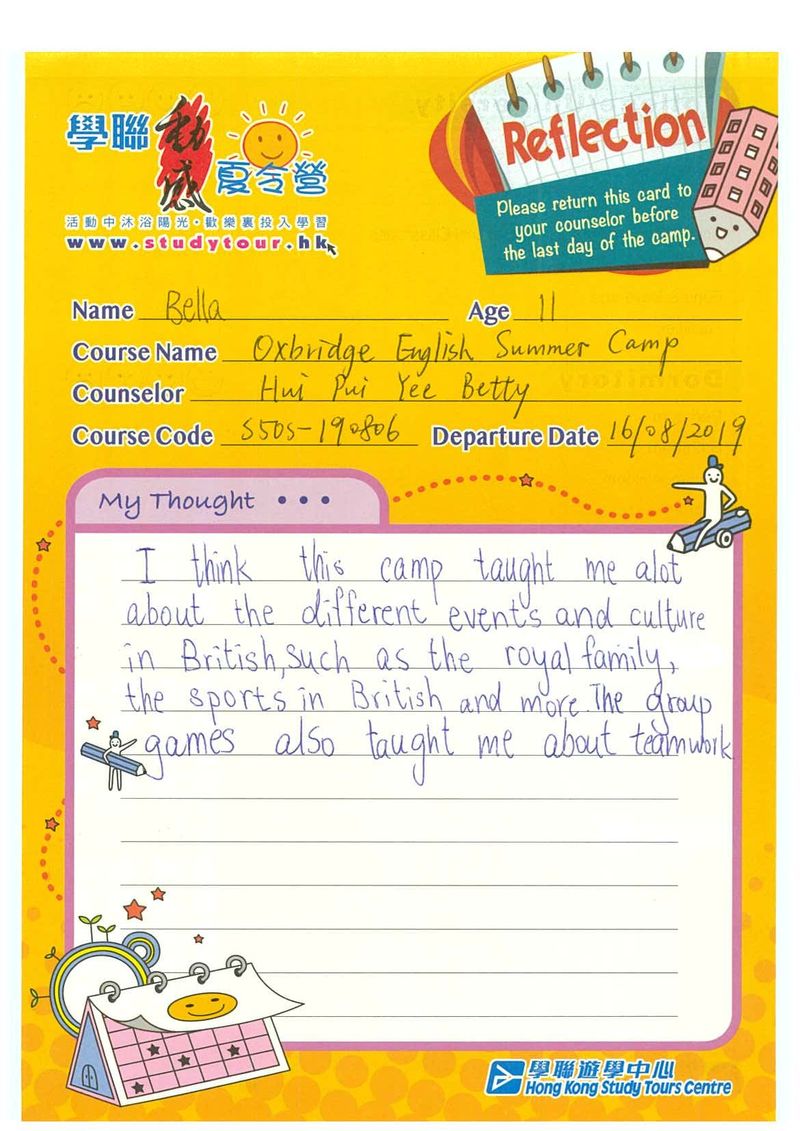 學聯 動感 夏令營
活動中沐浴陽光•歡樂裏投入學習
www.studytour.hk
Reflection
Please return this card to
your counselor before
the last day of the camp.
Name Bella Age 11
Course Name Oxbridge English Summer Camp
Counselor Hui Pui Yee Betty
Course Code S505-190806 Departure Date 16/08/2019
My Thought •••
I think this camp taught me alot
about the different events and culture
in British, such as the royal family,
the sports in British and more. The group
games also taught me about teamwork
學聯遊學中心
Hong Kong Study Tours Centre